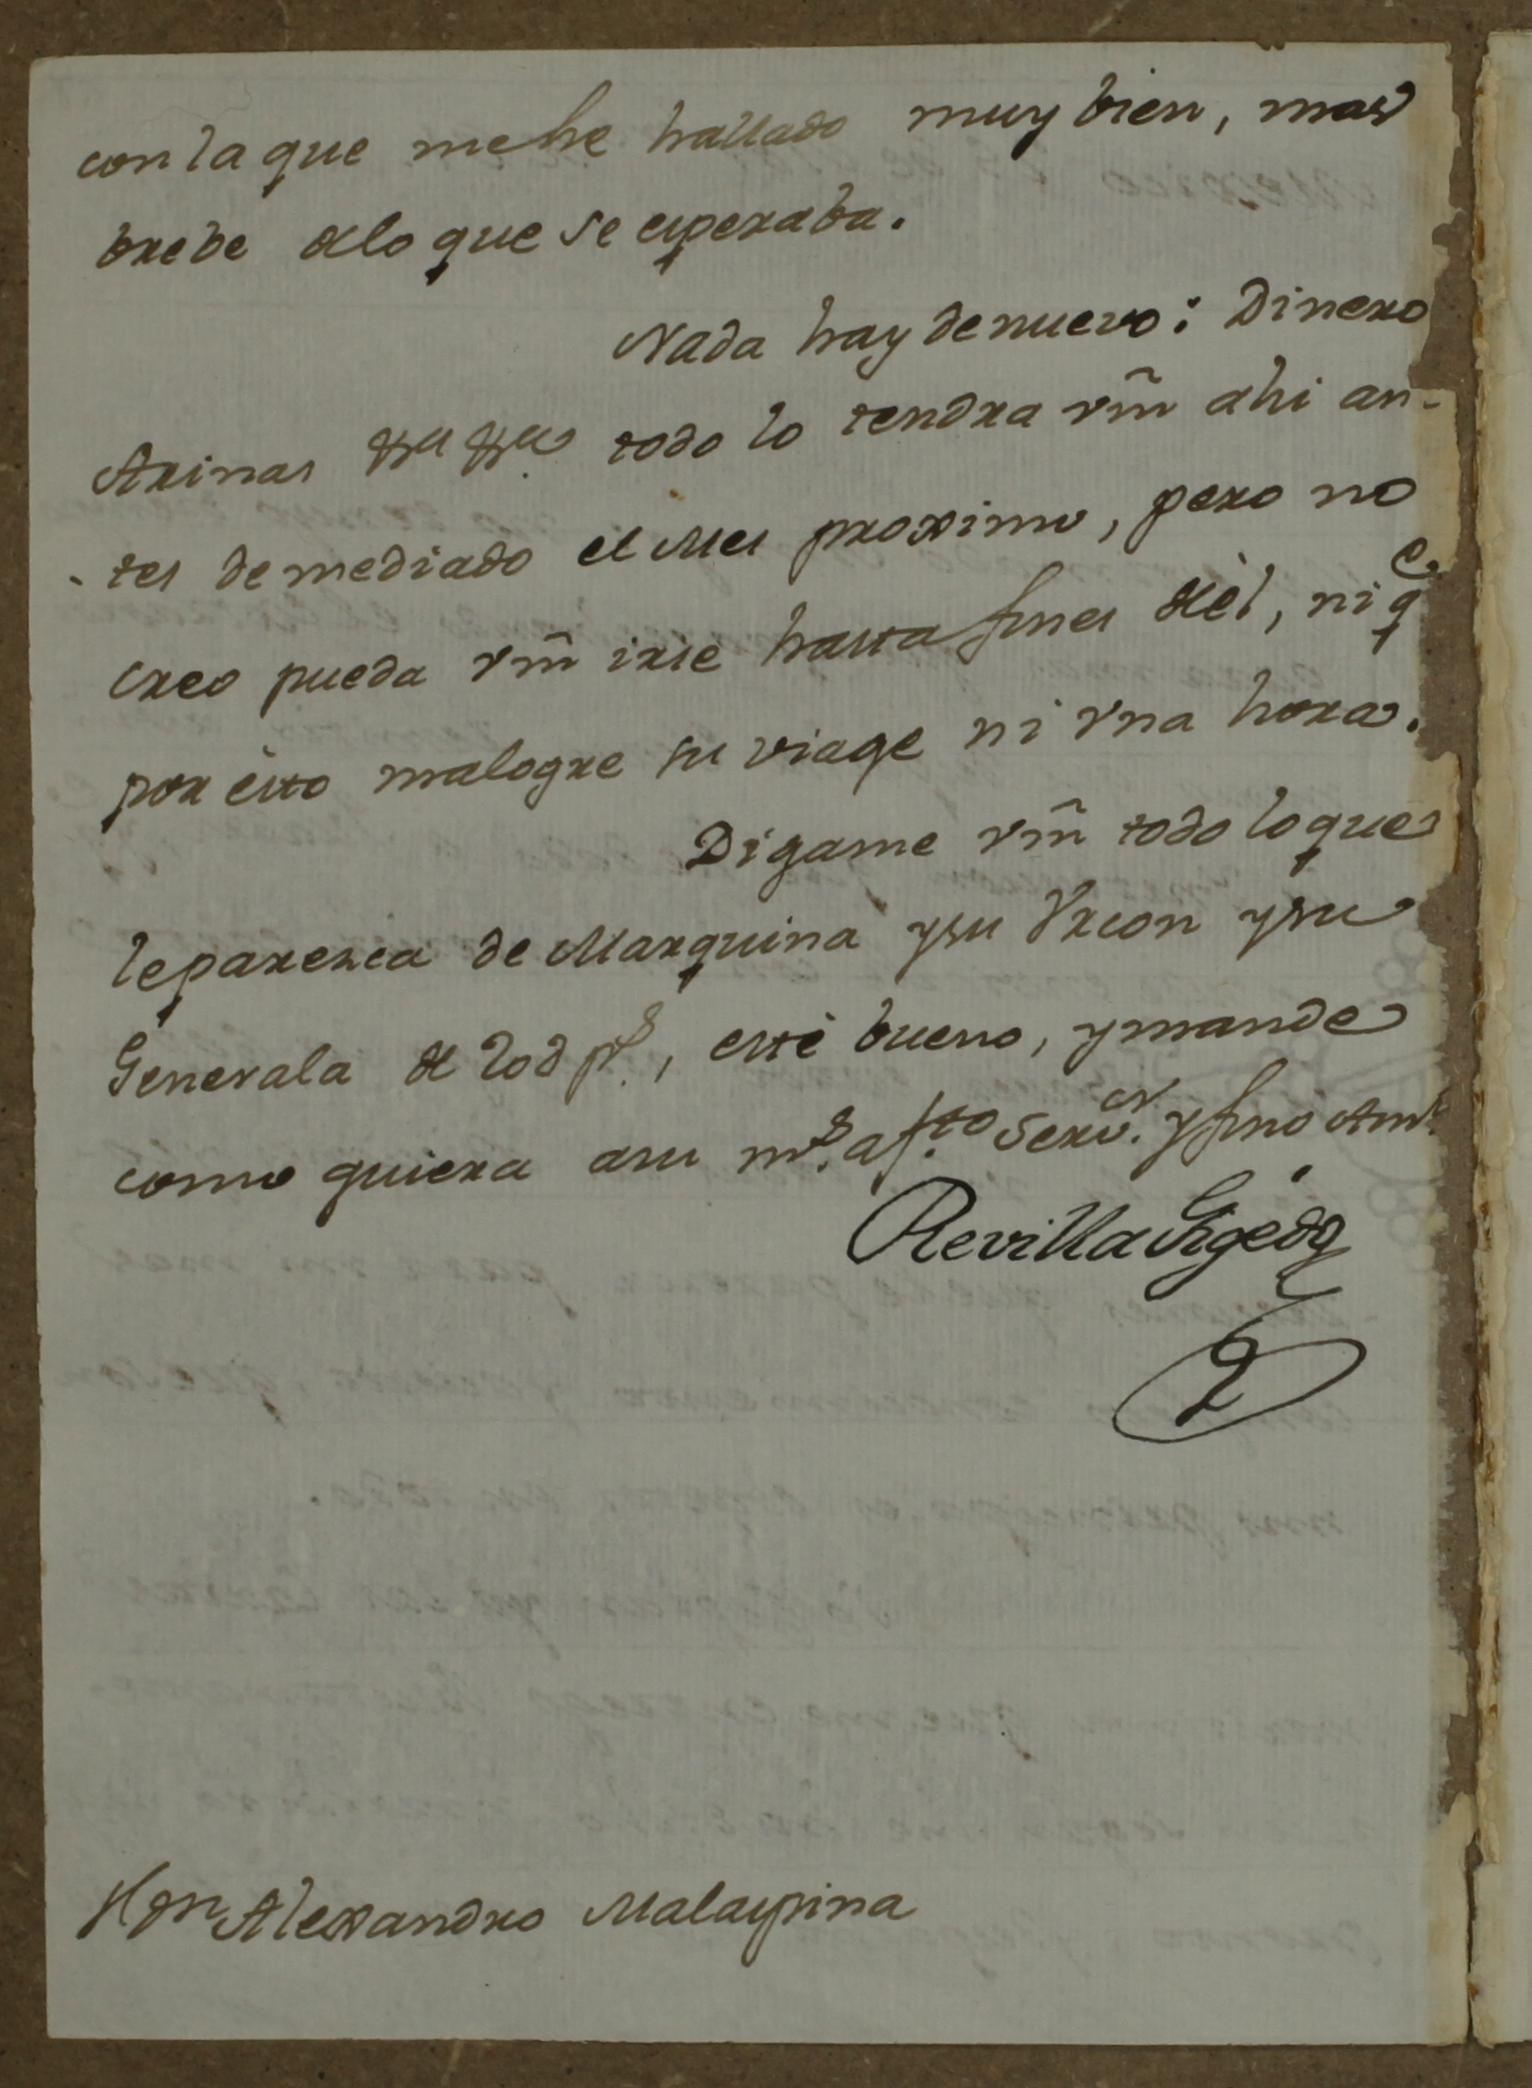 con la que me he hallado muy bien, mas
brebe de lo que se esperaba.
Nada hay de nuevo: Dinero
Arinas &a &a todo lo tendra vm̃ ahi an-
-tes de mediado el Mes proximo, pero no
creo pueda vm̃ irse hasta fines de èl, ni qe
por èsto malogre su viage ni vna hora.
Digame vm̃ todo lo que
le paresca de Marquina y su Vrcon y su
Generala de Tod ps., estè bueno, y mande
como quiera a su ms. afto. Serv.or y fino Amo.
Revilla Gigedo
Sr. Dn Alexandro Malaspina